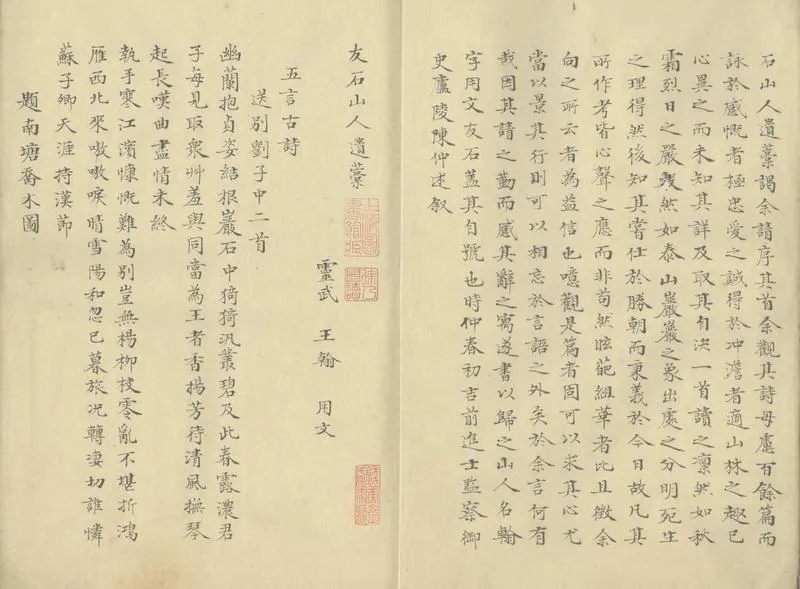 石山人遺藁謁余請序其首余觀其詩毋慮百餘篇而
詠於感慨者極忠愛之誠得於冲澹者適山林之趣已
心異之而未知其詳及取其自決一首讀之凛然如秋
霜烈日之嚴然如泰山巖巖之象出處之分明死生
之理得然後知其嘗仕於勝朝而秉義於今日故凡其
所作考皆心聲之應而非苟然眩葩組華者比且徵余
向之所云者為益信也噫觀是篇者固可以求其心尤
當以景其行則可以相忘於言語之外矣於余言何有
哉因其請之勤而感其辭之寓遂書以歸之山人名翰
字用文友石蓋其自號也時仲春初吉前進士監察御
史廬陵陳仲述叙
友石山人遺藁
靈武 王翰 用文
五言古詩
送别劉子中二首
幽蘭抱貞姿結根巖石中猗猗汎叢碧及此春露濃君
子每見取衆艸羞與同當為王者香揚芳待清風撫琴
起長嘆曲盡情未終
執手寒江濱慷慨難為别豈無楊柳枝零亂不堪折鴻
雁西北來嗷嗷唳晴雪陽和忽已暮旅况轉凄切誰憐
蘇子卿天涯持漢節
題南塘喬木圖